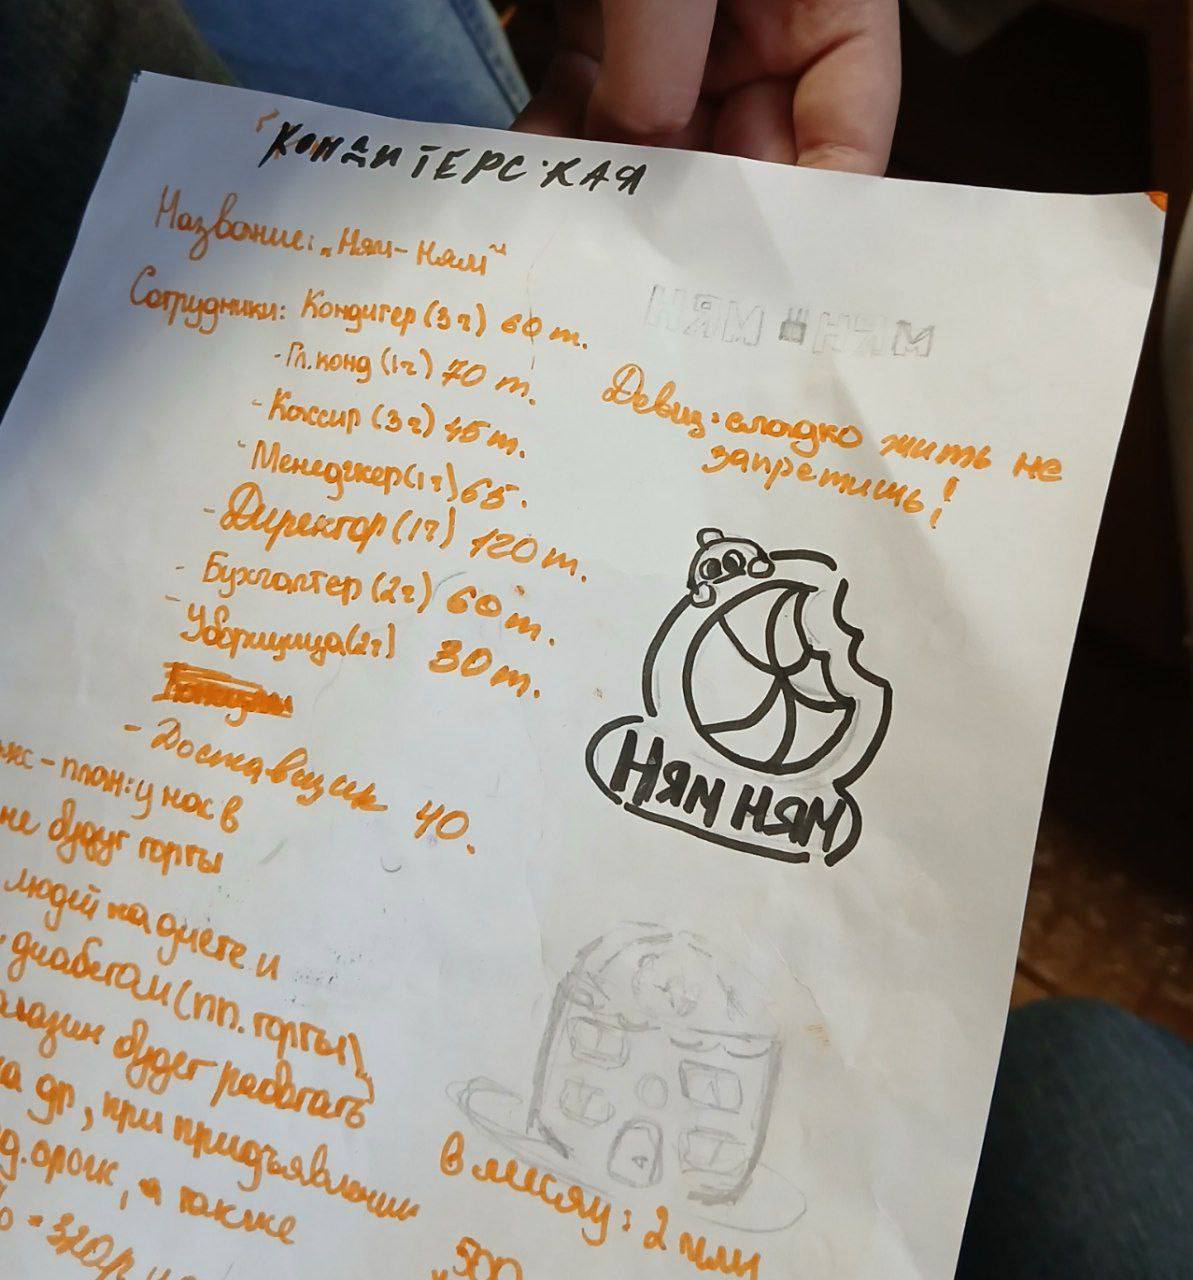 КОНДИТЕРСКАЯ
Название: „Ням-Ням"
Сотрудники: Кондитер (3ч) 60 т.
- Гл. конд (1ч) 70 т.
- Кассир (3ч) 45 т.
- Менеджер (1ч) 65.
- Директор (1ч) 120 т.
- Бухгалтер (2ч) 60 т.
- Уборщица (2ч) 30 т.
- Доставщик 40.
НЯМ НЯМ
Девиз: сладко жить не
запретишь!
НЯМ НЯМ
-план: у нас в
не будут торты
людей на диете и
диабетом (пп. торты)
будет работать
др, при предъявлении
, а также
320р
в месяц: 2 млн
500